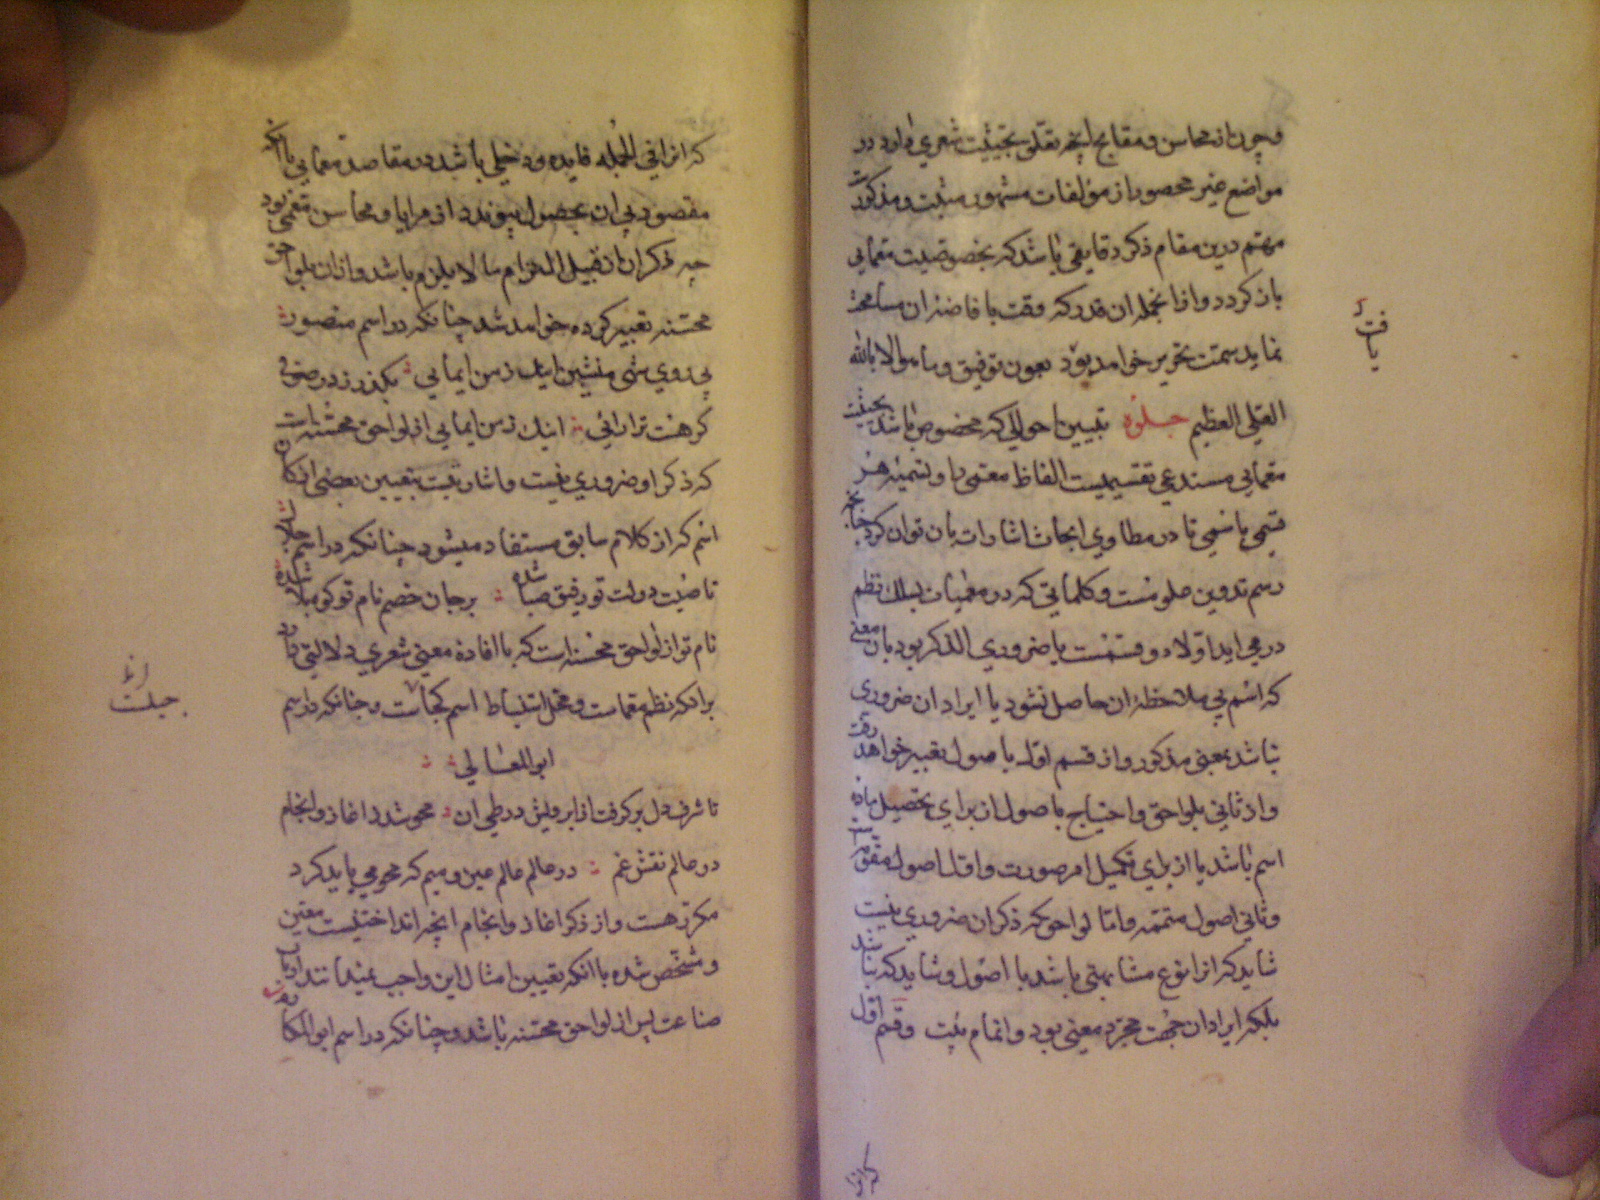 و چون از محاسن و مقابح آنچه تعلق بحیثیت شعری دارد در
مواضع غیر محصور از مؤلفات مشهور مثبت و مذکورست
مهتم درین مقام ذکر دقایقی باشد که بخصوصیت معمایی
باز کردد و از انجمله آن قدر که وقت با فاضهٔ آن مسامحت
نماید سمت تحریر خواهد یافت بعون توفیق و ما هو الا بالله
العلی العظیم جلوه تبیین احوالی که مخصوص باشد بحیثیت
معمایی مستدعی تقسیمیست الفاظ معمی را و تسمیه هر
قسمی باسمی تا در مطاوی ابحاث اشارات بان توان کرد چنانچه
رسم تدوین علومست و کلماتی که در معمیات بسلک نظم
در می اید اولا دو قسمست یا ضروری الذکر بود بان معنی
که اسم بی ملاحظهٔ ان حاصل نشود یا ایراد ان ضروری
نباشد بمعنی مذکور و از قسم اول باصول تعبیر خواهد رفت
و از ثانی بلواحق و احتیاج باصول از برای تحصیل ماده
اسم باشد یا از برای تکمیل امر صورت و اول اصول مقومه است
و ثانی اصول متممه و اما لواحق که ذکر ان ضروری نیست
شاید که انرا نوع مشابهتی باشد با اصول و شاید که نباشد
بلکه ایراد ان جهت مجرد معنی بود و اتمام بیت و قسم اول
یافت
که انرا فی الجمله فایده و دخلی باشد در مقاصد معمایی با انکه
مقصود بی ان بحصول پیوندد از مزایا و محاسن معمی بود
چه ذکر ان از قبیل التزام ما لا یلزم باشد و از ان بلواحق
محسنه تعبیر کرده خواهد شد چنانکه در اسم منصور
بی روی شی منشین اینک زمن ایمایی بکذر ز در صوفی
کر هست ترا رائی اینک زمن ایمایی از لواحق محسنه است
که ذکر او ضروری نیست و اشارتیست بتعیین بعضی ارکان
اسم که از کلام سابق مستفاد میشود چنانکه در اسم جلال
تا ضیت دولت تو رفیق صبا شده بر جان خصم نام تو کوه بلا شده
نام تو از لواحق محسنه است که با افادهٔ معنی شعری دلالتی دارد
برانکه نظم معماست و محل استنباط اسم کجاست و چنانکه در اسم
ابو المعالی
تا شرف دل بر کرفت از ابرویش در طی ان محو شد اغاز و انجام
در عالم نقش غم در عالم عالم عین و میم که محو می باید کرد
مکرر هست و از ذکر اغاز و انجام انچه انداختنیست معین
و مشخص شده با انکه تعیین امثال این واجب نمیدانند ارباب
صناعت پس از لواحق محسنه باشد و چنانکه در اسم ابو المکارم